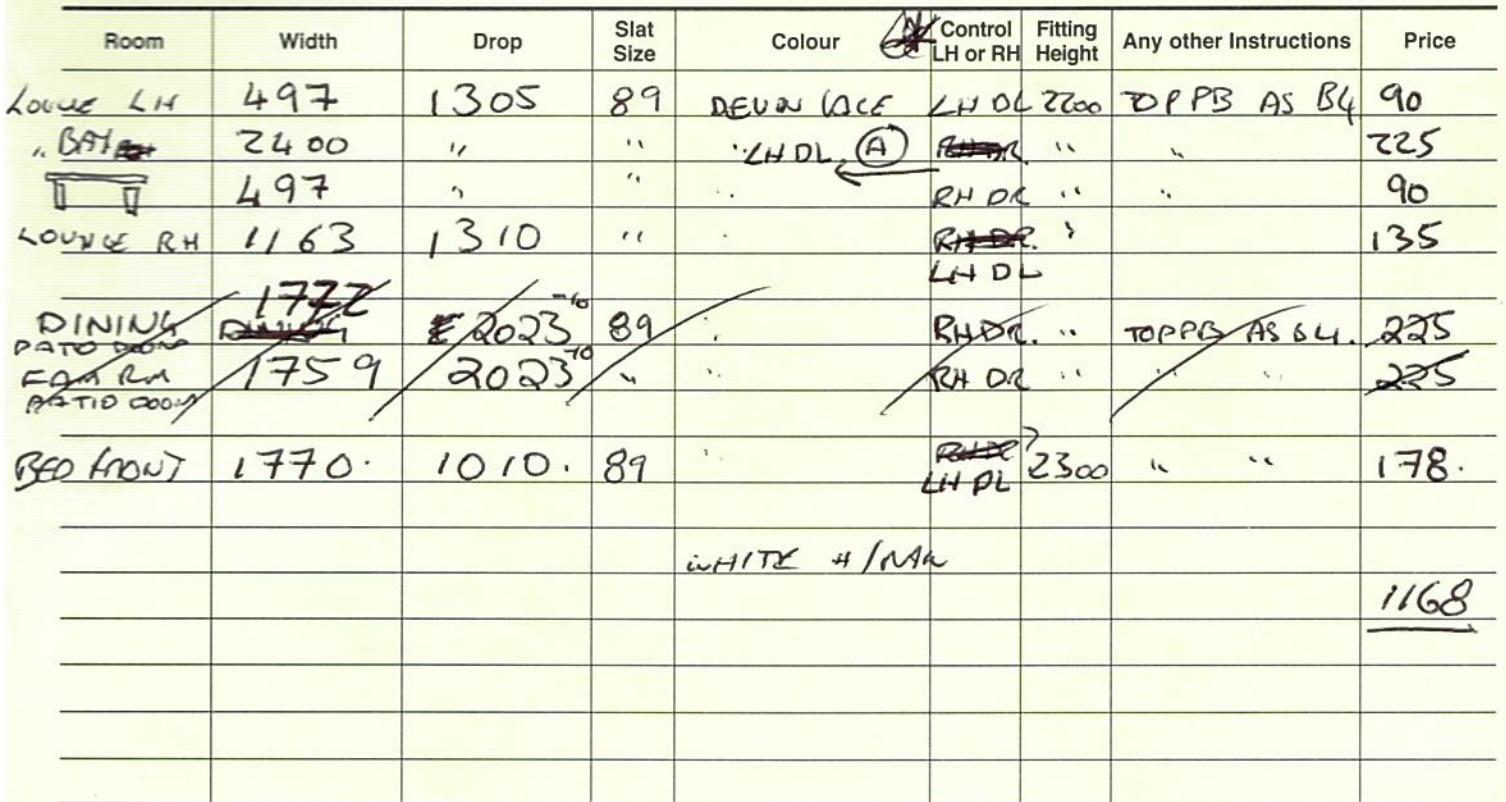 Room Width Drop Slat Size Colour Control LH or RH Fitting Height Any other Instructions Price
LOUNGE LH 497 1305 89 DEVON LH DL 2200 TOP PB AS B4 90
" BAY 2400 " " " LH DL A " " 225
497 " " " RH DR " " 90
LOUNGE RH 1163 1310 " " RH DR. " 135
LH DL
1772
DINING 2023 -10 89 " RH DR. " TOP PB AS B4. 225
PATIO DOOR
FAM RM 1759 2023 -10 " " RH DR " " " 225
PATIO DOOR
BED FRONT 1770. 1010. 89 " LH DL 2300 " " 178.
WHITE H/RAIL
1168